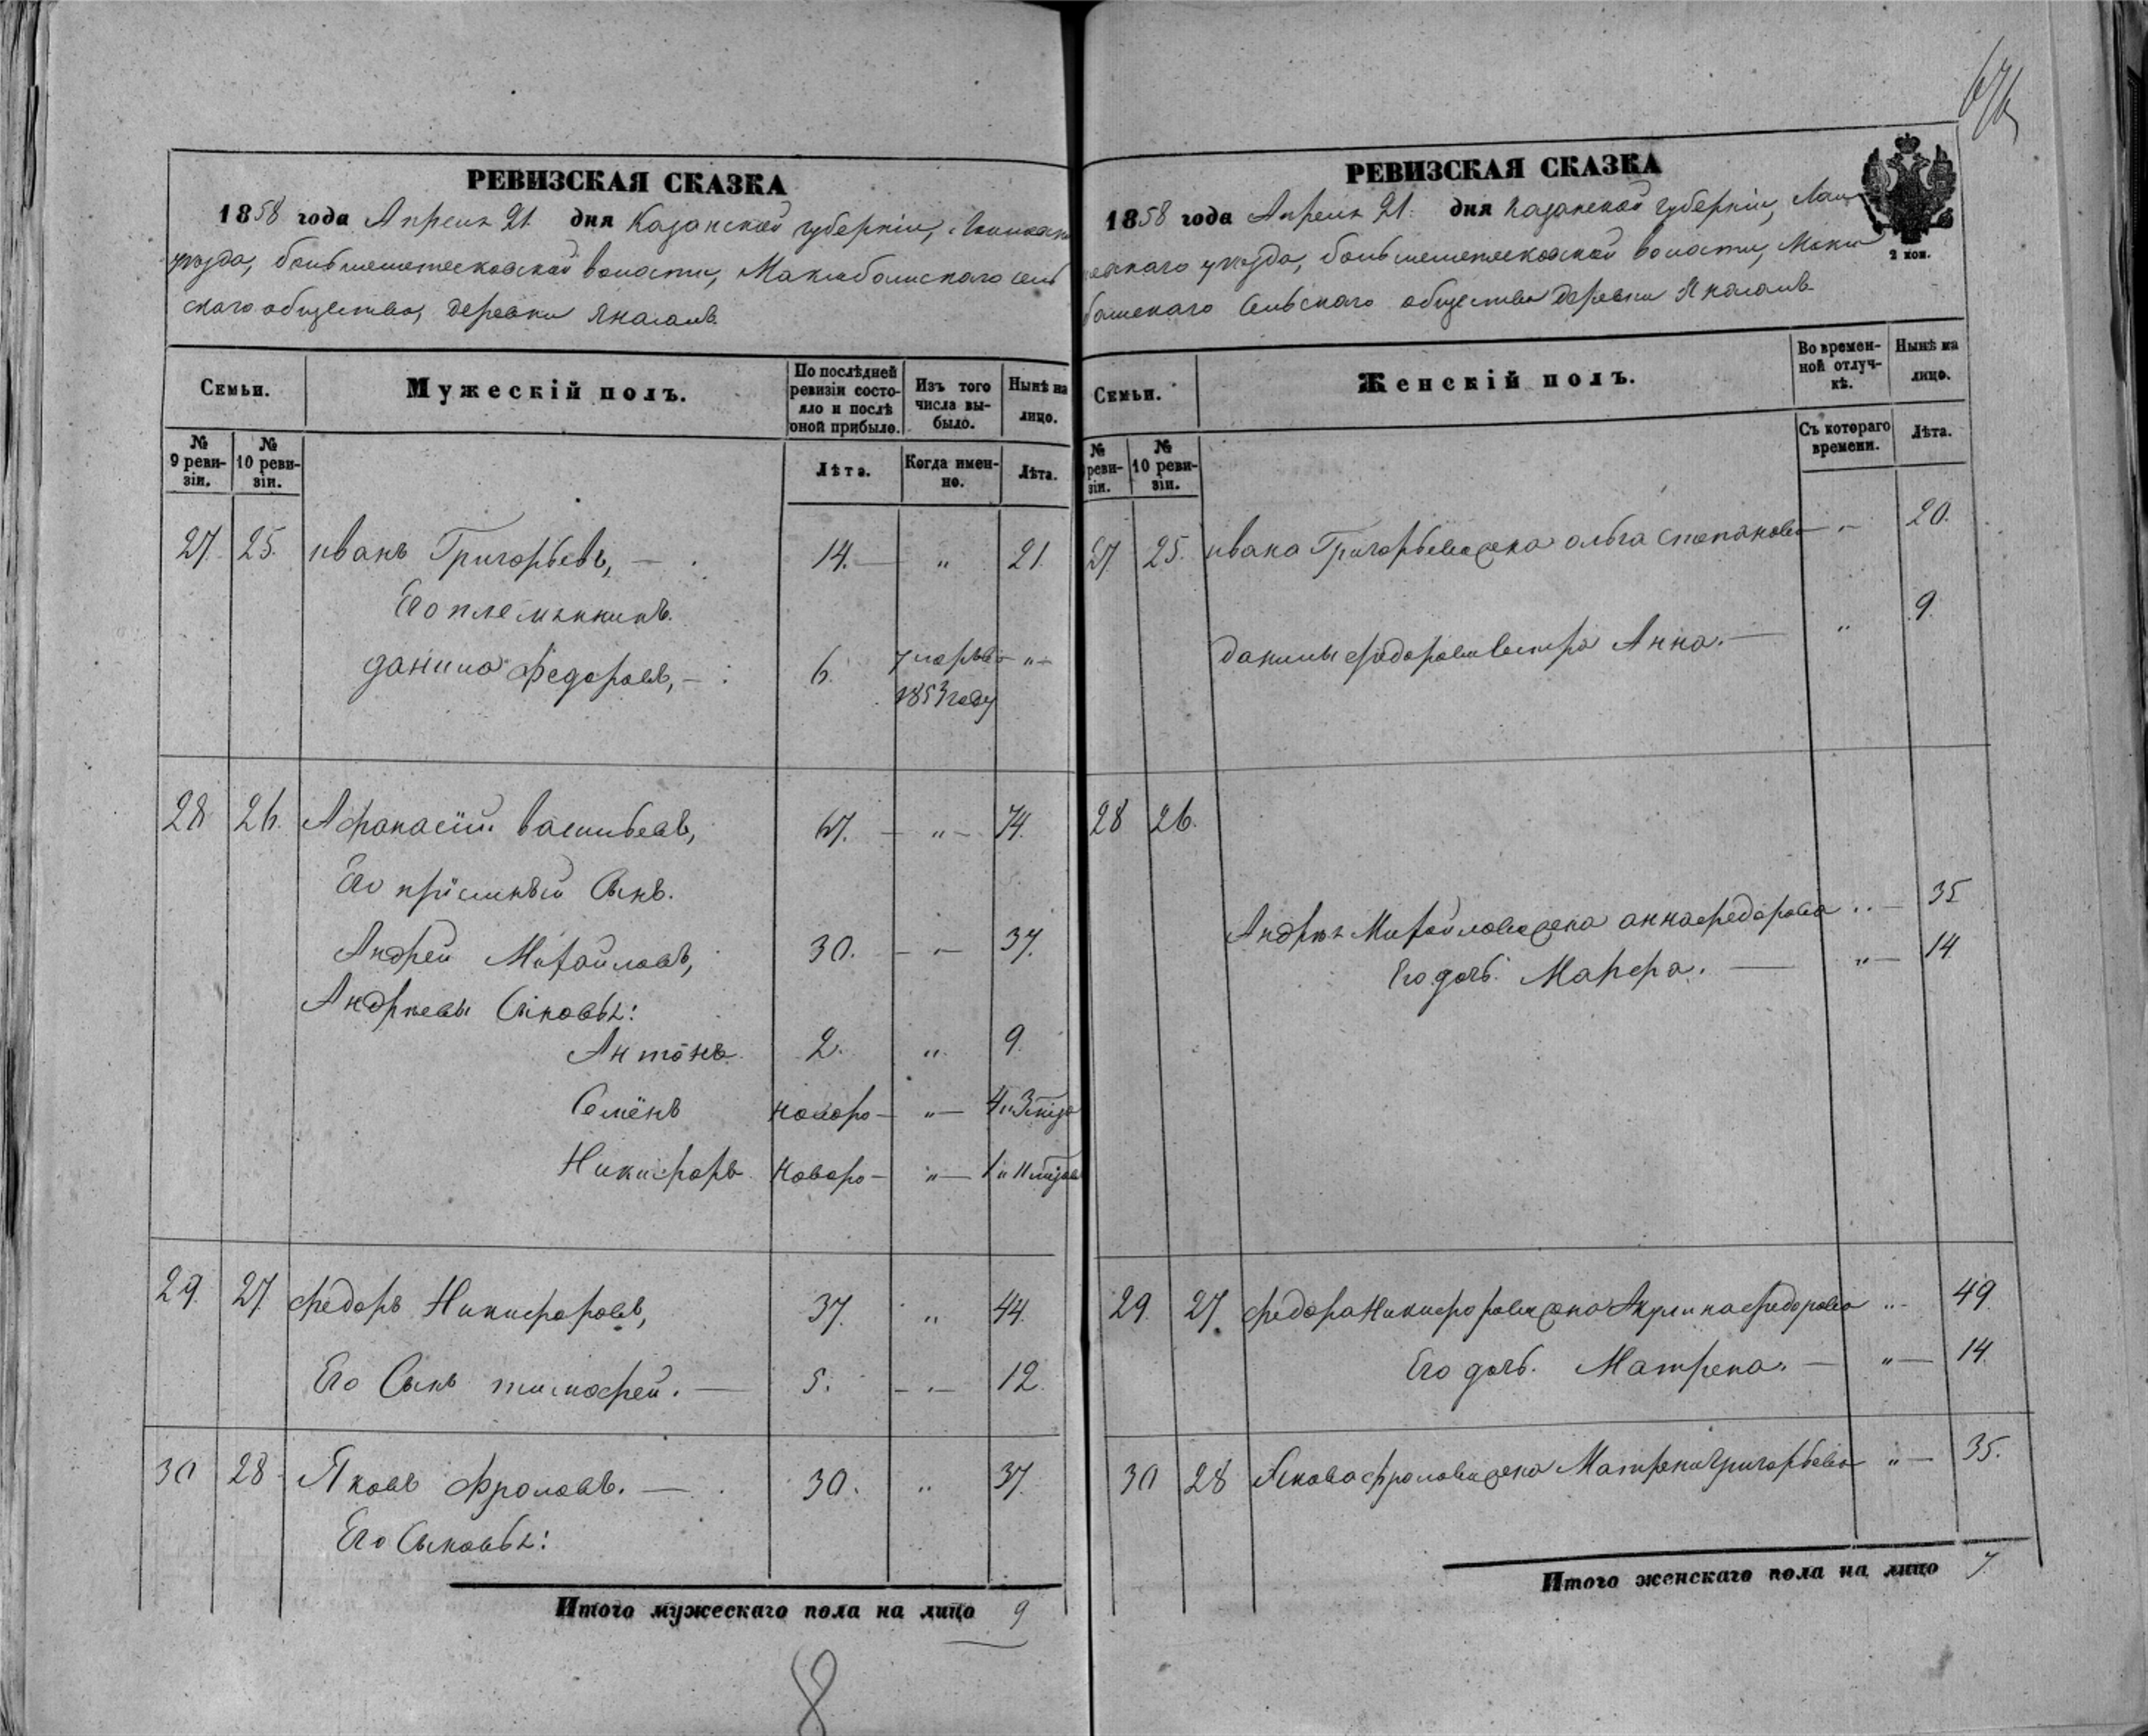 РЕВИЗСКАЯ СКАЗКА
1858 года Апреля 21. дня Казанской губерніи, Лаишевс
уѣзда, большеметесковской волости, Макабашскаго сель
скаго общества, деревни Янасалъ.
Семьи.
Мужескій полъ.
По послѣдней ревизіи состояло и послѣ оной прибыло.
Изъ того числа выбыло.
Нынѣ на лицо.
№ 9 ревизіи.
№ 10 ревизіи.
Лѣта.
Когда именно.
Лѣта.
27. 25. иванъ Григорьевъ, — 14. — „ 21.
Его племянникъ.
данило Федоровъ, — 6. умеръ въ — „ —
1853 году
28 26. Афанасій васильевъ, 67. — „ — 74.
Его пріемный Сынъ.
Андрей Михайловъ, 30. — „ — 37.
Андреевы Сыновья:
Антонъ 2. „ 9.
Семёнъ новоро — „ — 4 и 3 міся
Никифоръ новоро — „ — 1 и 11 міся
29. 27 федоръ Никифоровъ, 37. „ 44.
Его Сынъ тимофей. — 5. — „ — 12.
30 28 Яковъ Фроловъ. — 30. „ 37.
Его Сыновья:
Итого мужескаго пола на лицо 9
8
РЕВИЗСКАЯ СКАЗКА
1858 года Апреля 21. дня Казанской губерніи, Лаи
шевскаго уѣзда, большеметесковской волости, Мака
башскаго Сельскаго общества деревни Янасалъ.
2 коп.
Семьи.
Женскій полъ.
Во временной отлучкѣ.
Нынѣ на лицо.
№ реви-зіи.
№ 10 ревизіи.
Съ котораго времени.
Лѣта.
27 25. ивана Григорьева жена ольга степанова „ 20.
данилы федорова сестра Анна. — „ 9.
28 26.
Андрея Михайлова жена анна федорова „ — 35
Его дочь. Марфа. — „ — 14
29. 27. федора Никифорова жена Акулина федорова „ 49
Его дочь. Матрена. — „ — 14.
30 28 Якова фролова жена Матрена григорьева „ — 35.
Итого женскаго пола на лицо 7